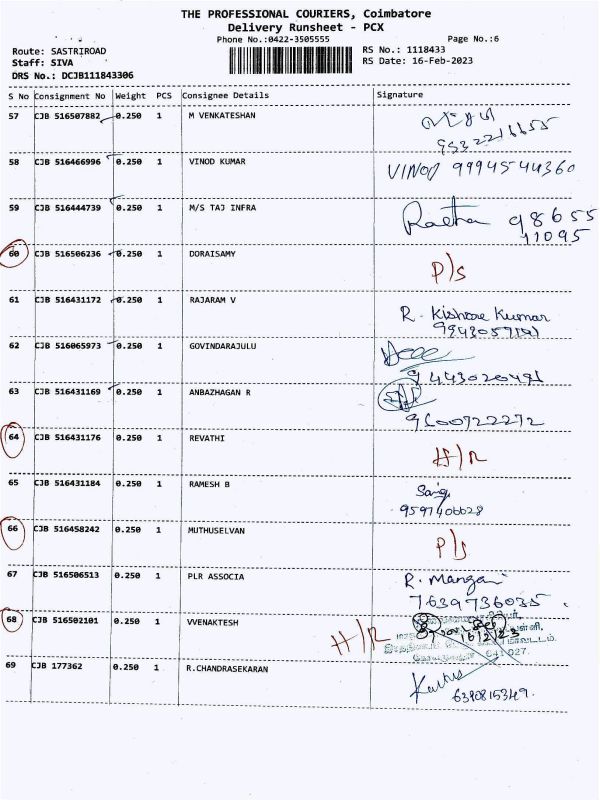 THE PROFESSIONAL COURIERS, Coimbatore
Delivery Runsheet - PCX
Phone No.:0422-3505555 Page No.:6
Route: SASTRIROAD RS No.: 1118433
Staff: SIVA RS Date: 16-Feb-2023
DRS No.: DCJB111843306
S No Consignment No Weight PCS Consignee Details Signature
57 CJB 516507882 0.250 1 M VENKATESHAN
58 CJB 516466996 0.250 1 VINOD KUMAR VINOD 9994544360
59 CJB 516444739 0.250 1 M/S TAJ INFRA Raetha 98655
11095
60 CJB 516506236 0.250 1 DORAISAMY P/S
61 CJB 516431172 0.250 1 RAJARAM V R. Kishore Kumar
62 CJB 516065973 0.250 1 GOVINDARAJULU
9443020491
63 CJB 516431169 0.250 1 ANBAZHAGAN R
9600722272
64 CJB 516431176 0.250 1 REVATHI H/R
65 CJB 516431184 0.250 1 RAMESH B
66 CJB 516458242 0.250 1 MUTHUSELVAN P/S
67 CJB 516506513 0.250 1 PLR ASSOCIA R. Mangai
7639736035
68 CJB 516502101 0.250 1 VVENAKTESH H/R 16/2/23
641 027.
69 CJB 177362 0.250 1 R.CHANDRASEKARAN
6390815349.